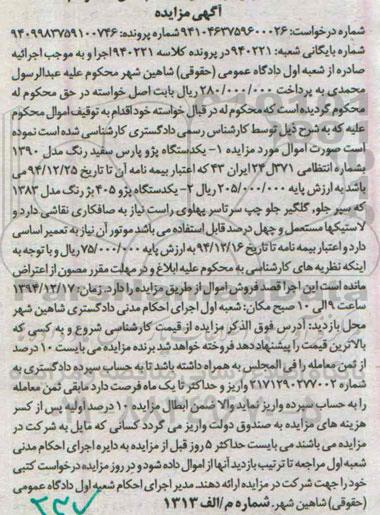 آگهی مزایده
شماره درخواست: ۹۴۱۰۴۶۳۷۵۹۶۰۰۰۲۶ شماره پرونده: ۹۴۰۹۹۸۳۷۵۹۱۰۰۷۴۶
شماره بایگانی شعبه: ۹۴۰۲۲۱ در پرونده کلاسه ۹۴۰۲۲۱ اجرا و به موجب اجرائیه
صادره از شعبه اول دادگاه عمومی (حقوقی) شاهین شهر محکوم علیه عبدالرسول
محمدی به پرداخت ۲۸۰/۰۰۰/۰۰۰ ریال بابت اصل خواسته در حق محکوم له
محکوم گردیده است که محکوم له در قبال خواسته خود اقدام به توقیف اموال محکوم
علیه که به شرح ذیل توسط کارشناس رسمی دادگستری کارشناسی شده است نموده
است صورت اموال مورد مزایده ۱- یکدستگاه پژو پارس سفید رنگ مدل ۱۳۹۰
بشماره انتظامی ۳۷۱ل۲۴ ایران ۴۳ که اعتبار بیمه نامه آن تا تاریخ ۹۴/۱۲/۲۵ می
باشد به ارزش پایه ۲۰۵/۰۰۰/۰۰۰ ریال ۲- یکدستگاه پژو ۴۰۵ بژ رنگ مدل ۱۳۸۳
که سپر جلو، گلگیر جلو چپ سرتاسر پهلوی راست نیاز به صافکاری نقاشی دارد و
لاستیکها مستعمل و چهل درصد قابل استفاده می باشد موتور آن نیاز به تعمیر اساسی
دارد و اعتبار بیمه نامه تا تاریخ ۹۴/۱۲/۱۶ به ارزش پایه ۷۵/۰۰۰/۰۰۰ ریال و با توجه به
اینکه نظریه های کارشناسی به محکوم علیه ابلاغ و در مهلت مقرر مصون از اعتراض
مانده است این اجرا قصد فروش اموال از طریق مزایده را دارد. زمان: ۱۳۹۴/۱۲/۱۷
ساعت ۹ الی ۱۰ صبح مکان: شعبه اول اجرای احکام مدنی دادگستری شاهین شهر
محل بازدید: آدرس فوق الذکر مزایده از قیمت کارشناسی شروع و به کسی که
بالاترین قیمت را پیشنهاد دهد فروخته خواهد شد برنده مزایده می بایست ۱۰ درصد
از ثمن معامله را فی المجلس به همراه داشته باشد تا به حساب سپرده دادگستری به
شماره ۲۱۷۱۲۹۰۲۷۷۰۰۲ واریز و حداکثر تا یک ماه فرصت دارد مابقی ثمن معامله
را به حساب سپرده واریز نماید والا ضمن ابطال مزایده ۱۰ درصد اولیه پس از کسر
هزینه های مزایده به صندوق دولت واریز می گردد کسانی که مایل به شرکت در
مزایده می باشند می بایست حداکثر ۵ روز قبل از مزایده به دایره اجرای احکام مدنی
شعبه اول مراجعه تا ترتیب بازدید آنها از اموال داده شود و در روز مزایده درخواست کتبی
خود را جهت شرکت در مزایده ارائه دهند. مدیر اجرای احکام شعبه اول دادگاه عمومی
(حقوقی) شاهین شهر. شماره م/الف ۱۳۱۳